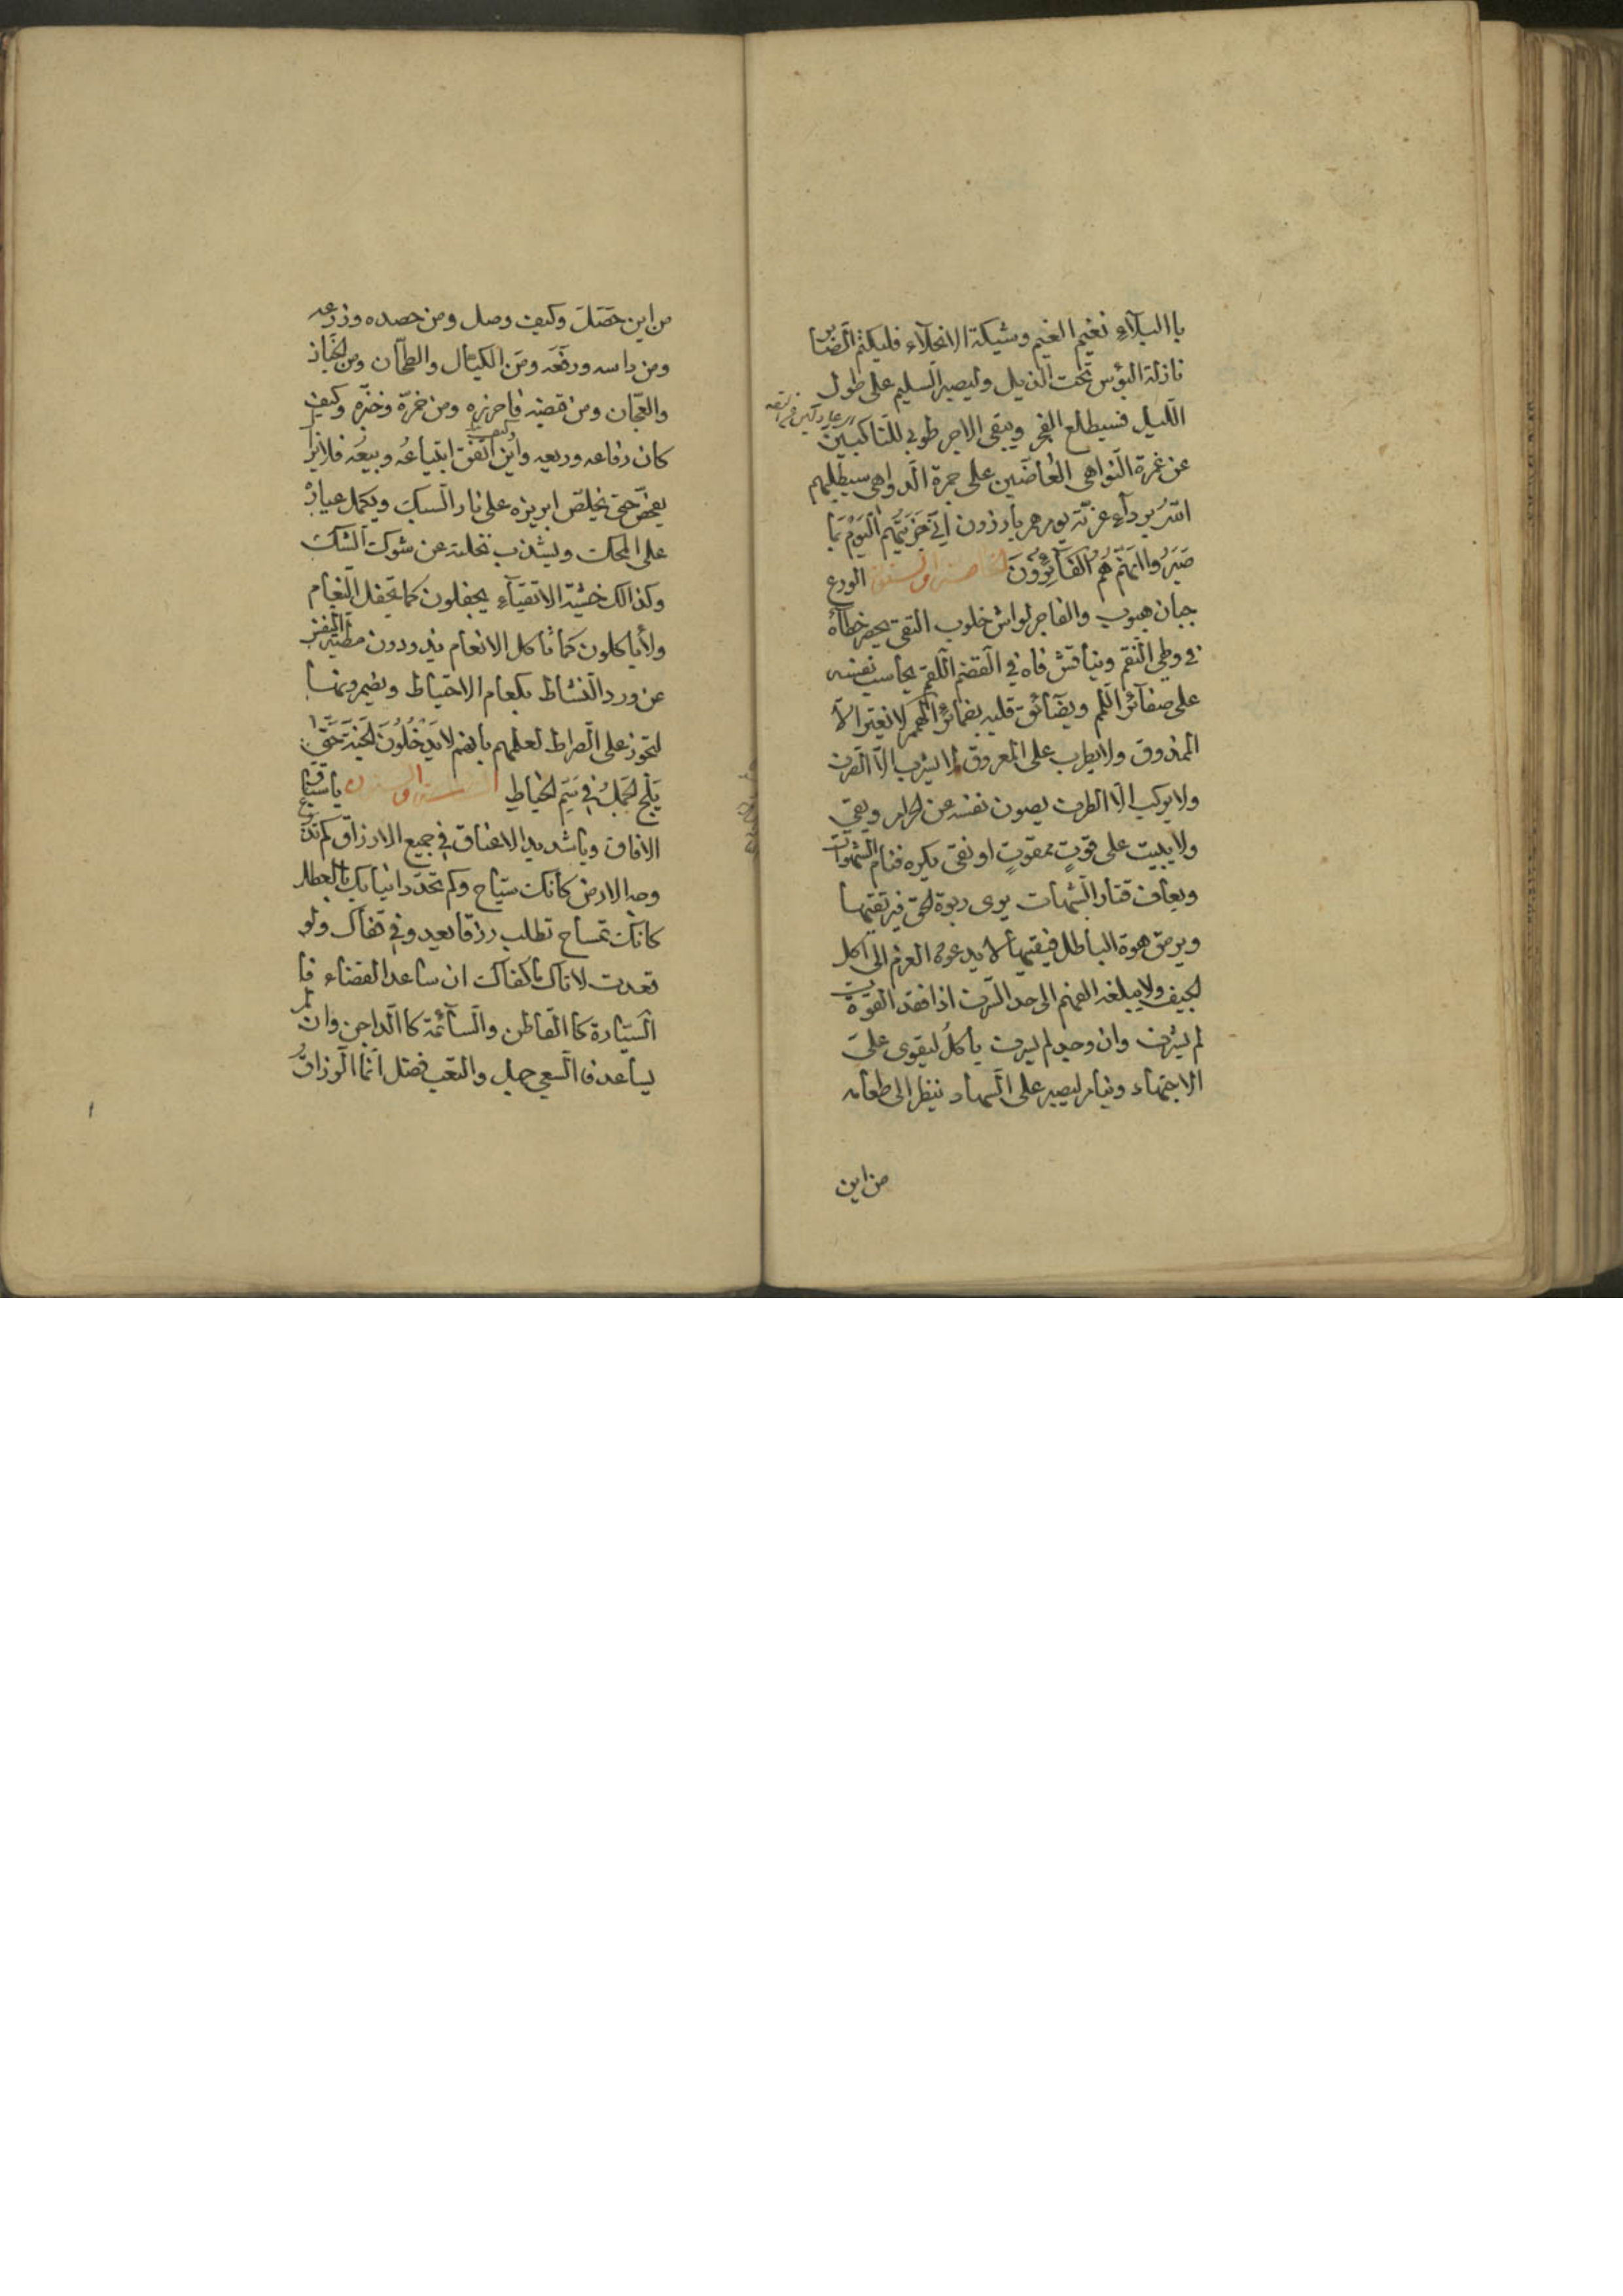 باالبلاء نغيم الغيم وشيكة الانجلاء فليكتم الصابر
نازلة البؤس تحت الذيل وليصبر السليم على طول
الليل فسيطلع الفجر ويبقى الاجر طوبى للناكبين
عن غمرة النواهى العاضين على جمرة الدواهى سيظلهم
الله برداء عزته يوم هم بارزون انى جزيتهم اليوم بما
صبروا انهم هم الفائزون الورع
جبان هبوب والفاجر لواش خلوب التقى يحصر خطاه
فى وطى النقم ويناقش فاه فى القضم اللقم يحاسب نفسه
على صغائر اللمم ويضائق قلبه بضمائر الهمم لا يغتر الا
الممذوق ولا يطرب على المعروق لا يشرب الا القرف
ولا يركب الا الطرف يصون نفسه عن الحرام ويقى
ولا يبيت على قوت ممقوت او نقى يكره قتام الشهوات
ويعاف قتار الشبهات يرى ربوة الحق فيرتقيها
ويرمق هوة الباطل فيتقيها لا يدعوه العزم الى اكل
الجيف ولا يبلغه النهم الى حد السرف اذا فقد القوت
لم يشرف وان وجد لم يسرف ياكل ليقوى على
الاجتهاد وينام ليصبر على السهاد ينظر الى طعامه
من اين
من اين حصل وكيف وصل ومن حصده وزرعه
ومن داسه ورفعه ومن الكيال والطحان ومن الخباز
والعجان ومن قبضه فاحرزه ومن خمره وخبزه وكيف
كان رفاعه وريعه واين اتفق ابتياعه وبيعه فلا يزال
يفحص حتى يخلص ابريزه على نار السبك ويكمل عياره
على المحك ويشذب نخلته عن شوكت الشك
وكذالك خشية الاتقياء يجفلون كما تجفل النعام
ولا ياكلون كما تاكل الانعام يذودون مطية النفس
عن ورد النشاط بكعام الاحتياط ويضمرونها
لتجوز على الصراط لعلمهم بانهم لا يدخلون الجنة حتى
يلج الجمل فى سم الخياط يا سباق
الافاق ويا شديد الاعناق فى جميع الارزاق كم تذرع
وجه الارض كانك سياح وكم تحدد انيابك بالعطل
كانك تمساح تطلب رزقا بعيد وفى قفاك ولو
قعدت لاتاك ما كفاك ان ساعد القضاء فا
السيارة كا القاطن والسائمة كا الداجن وان لم
يساعد فا السعى جهل والتعب فضل انما الرزاق